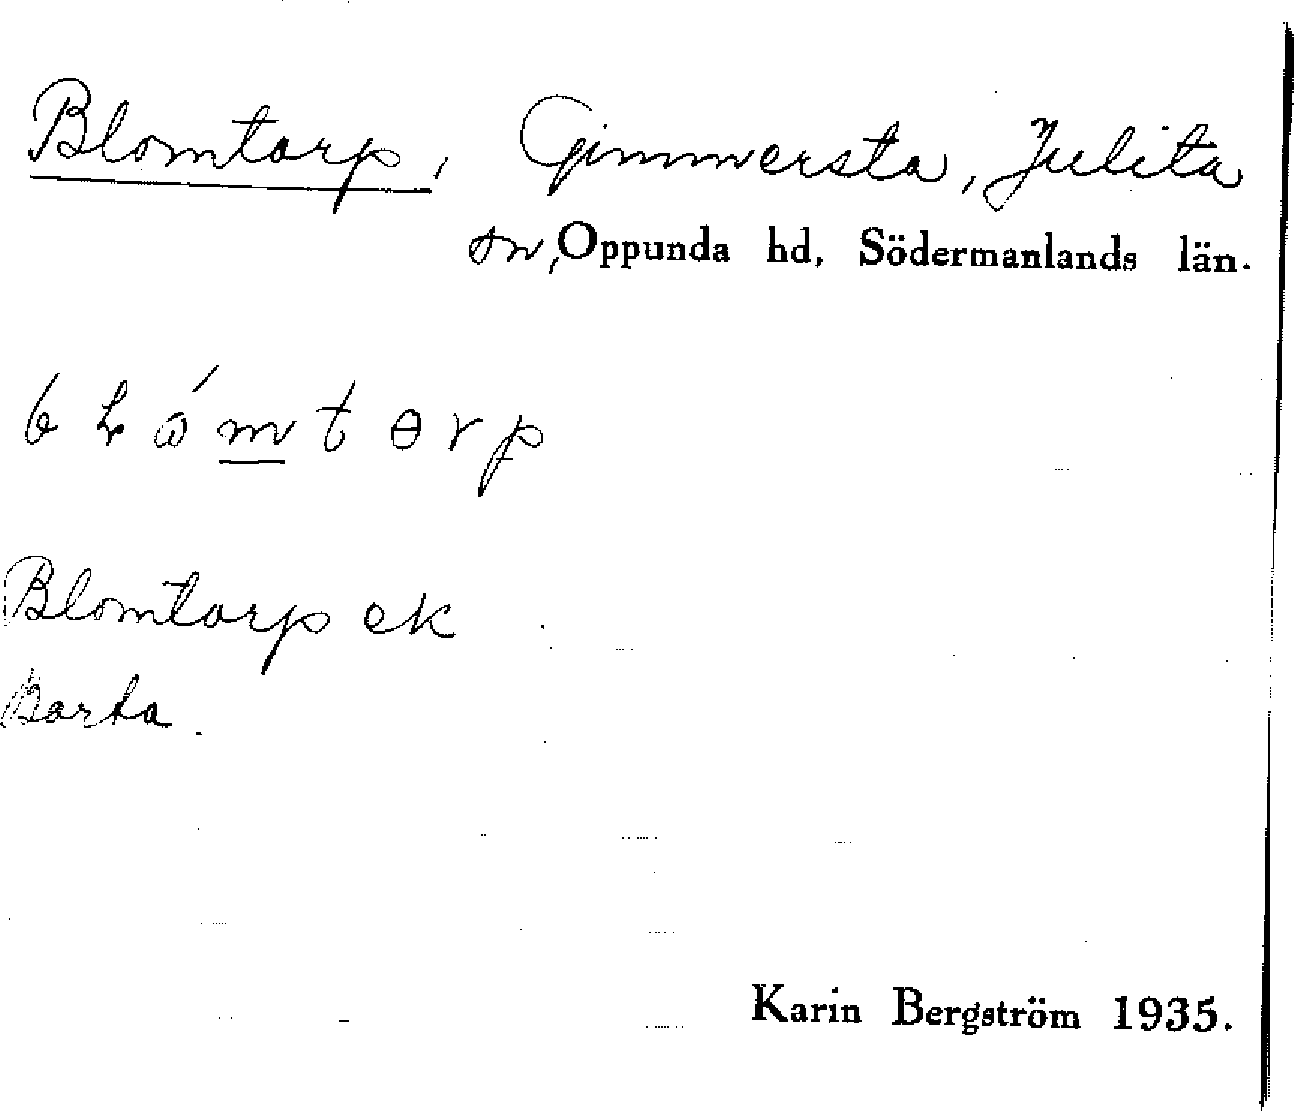 Blomtorp, Gimmersta, Julita
sn, Oppunda hd, Södermanlands län.
Blomtorp ek
Barta
Karin Bergström 1935.